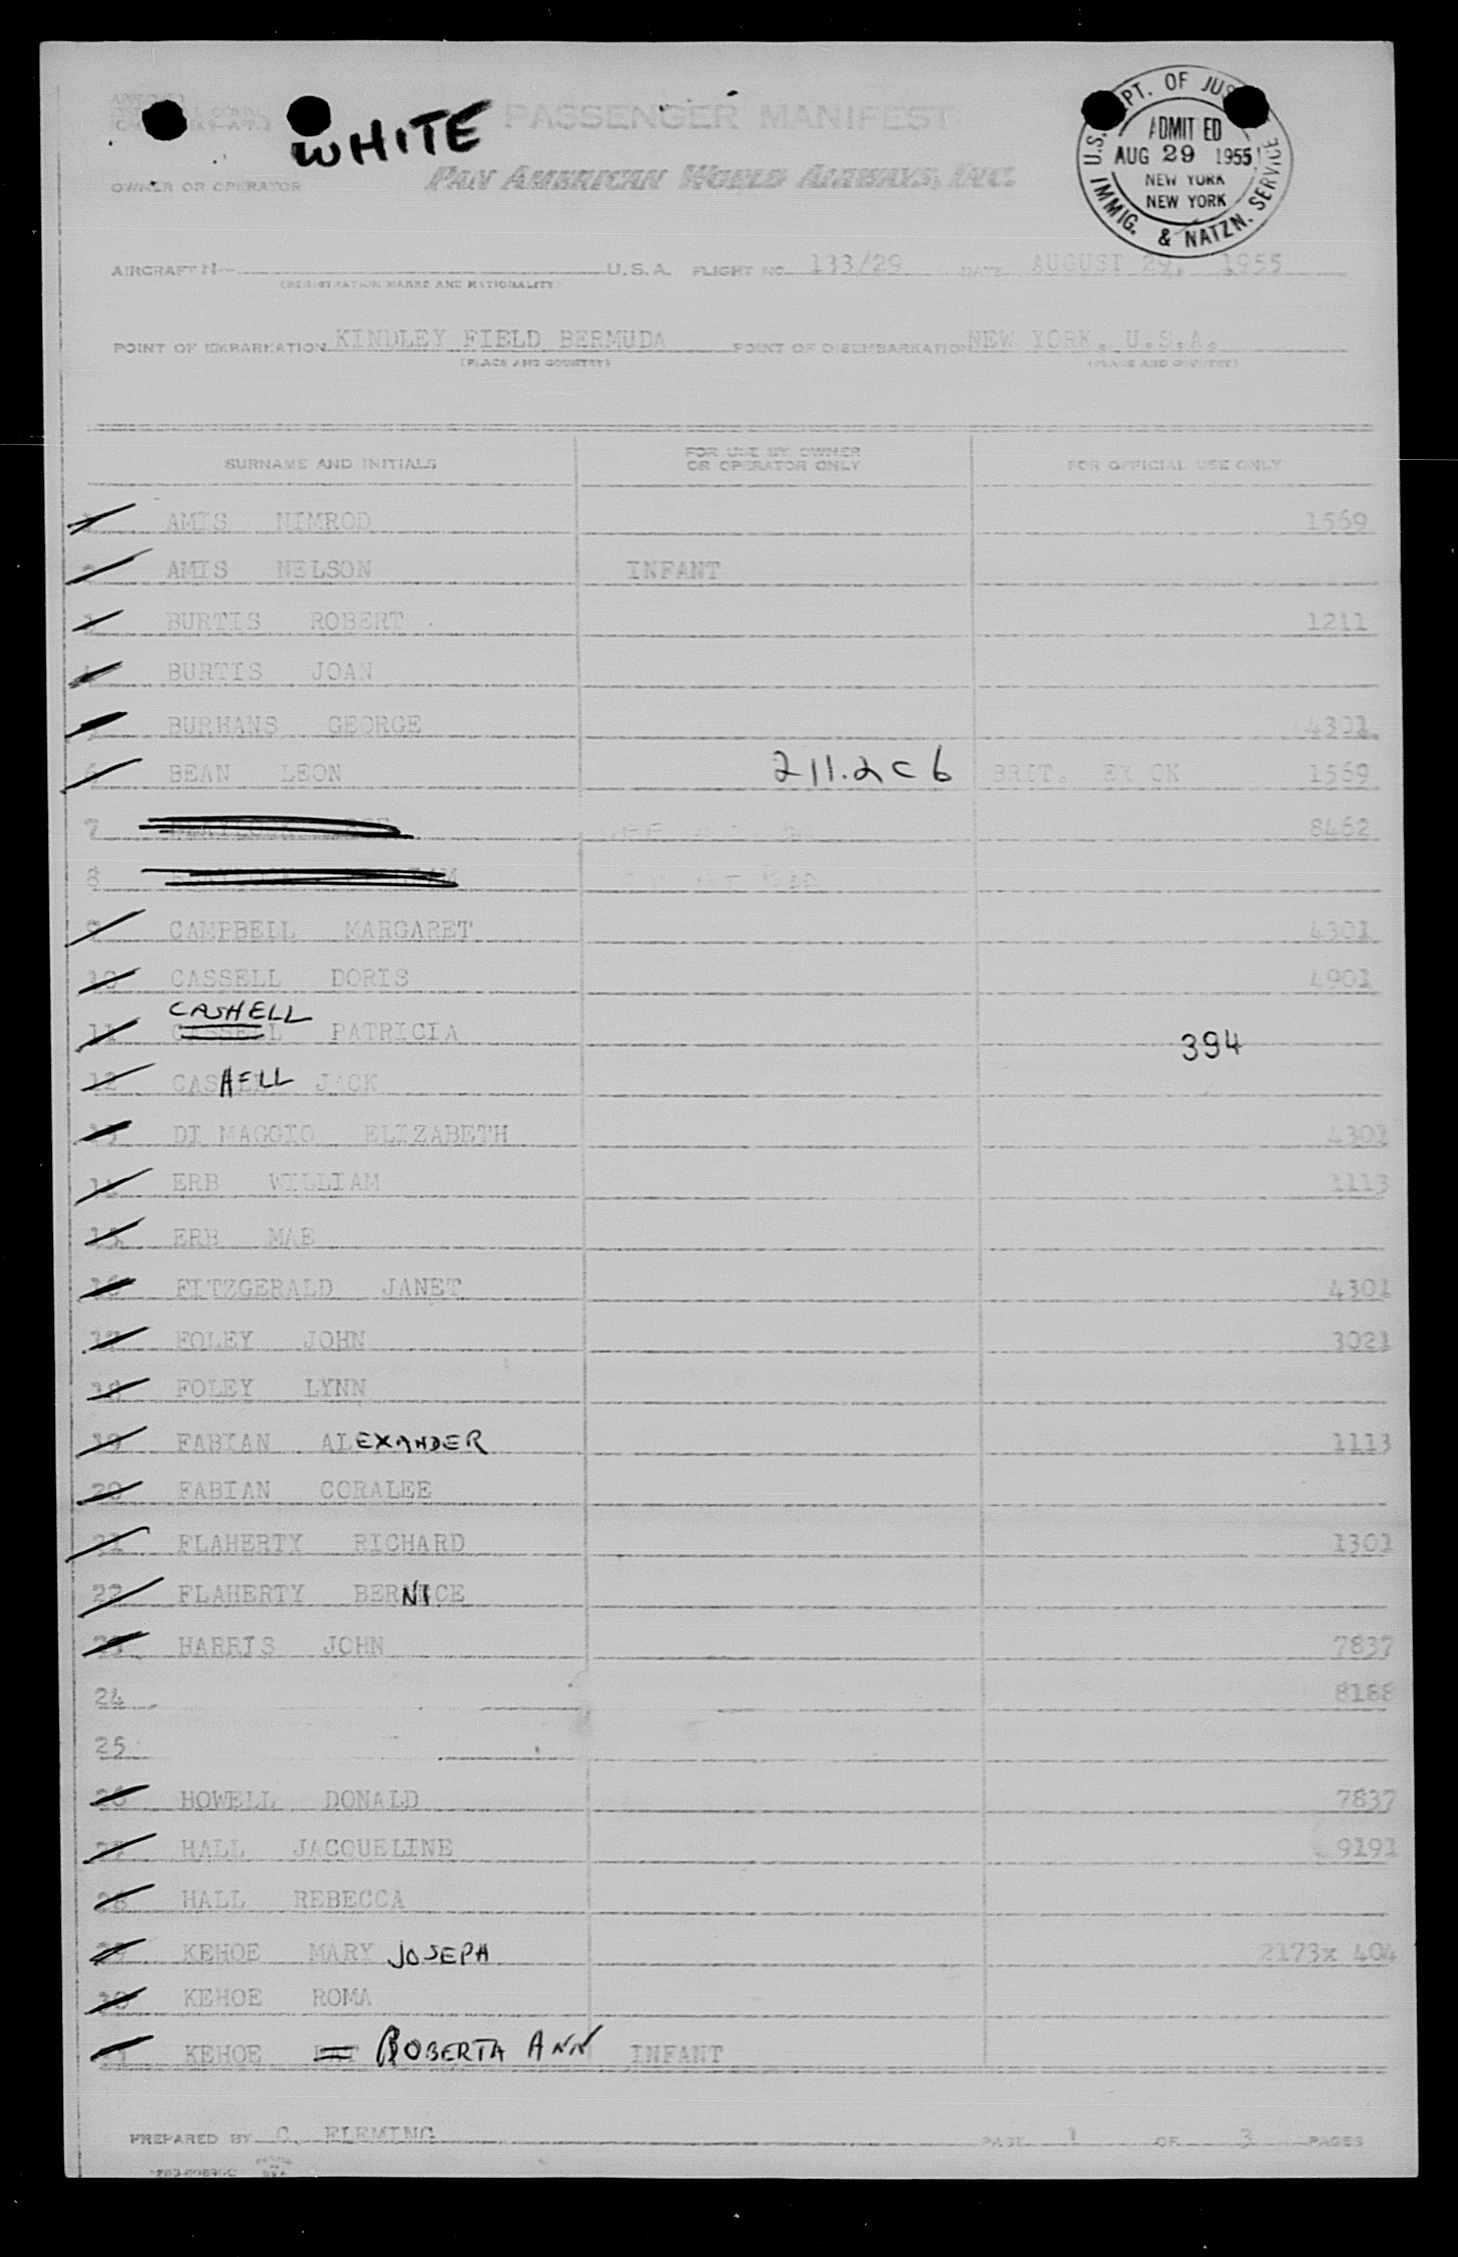 WHITE PASSENGER MANIFEST
OWNER OR OPERATOR PAN AMERICAN WORLD AIRWAYS, INC.
U.S. DEPT. OF JUS
ADMIT ED
AUG 29 1955
NEW YORK
NEW YORK
IMMIG. & NATZN. SERVICE
AIRCRAFT N- U.S.A. FLIGHT NO. 133/29 DATE AUGUST 29, 1955
(REGISTRATION MARKS AND NATIONALITY)
POINT OF EMBARKATION KINDLEY FIELD BERMUDA POINT OF DISEMBARKATION NEW YORK, U.S.A.
(PLACE AND COUNTRY) (PLACE AND COUNTRY)
SURNAME AND INITIALS FOR USE BY OWNER OR OPERATOR ONLY FOR OFFICIAL USE ONLY
1 AMIS NIMROD 1569
2 AMIS NELSON INFANT
3 BURTIS ROBERT 1211
4 BURTIS JOAN
5 BURHANS GEORGE 4301
6 BEAN LEON 211.2c6 BRIT. EX CK 1569
7 8462
8
9 CAMPBELL MARGARET 4301
10 CASSELL DORIS 4901
CASHELL
11 CASSELL PATRICIA 394
12 CASHELL JACK
13 DI MAGGIO ELIZABETH 4301
14 ERB WILLIAM 1113
15 ERB MAE
16 FITZGERALD JANET 4301
17 FOLEY JOHN 3021
18 FOLEY LYNN
19 FABIAN ALEXANDER 1113
20 FABIAN CORALEE
21 FLAHERTY RICHARD 1301
22 FLAHERTY BERNICE
23 HARRIS JOHN 7837
24 8188
25
26 HOWELL DONALD 7837
27 HALL JACQUELINE 9191
28 HALL REBECCA
29 KEHOE MARY JOSEPH 2173x 404
30 KEHOE ROMA
31 KEHOE ROBERTA ANN INFANT
PREPARED BY C. FLEMING PAGE 1 OF 3 PAGES